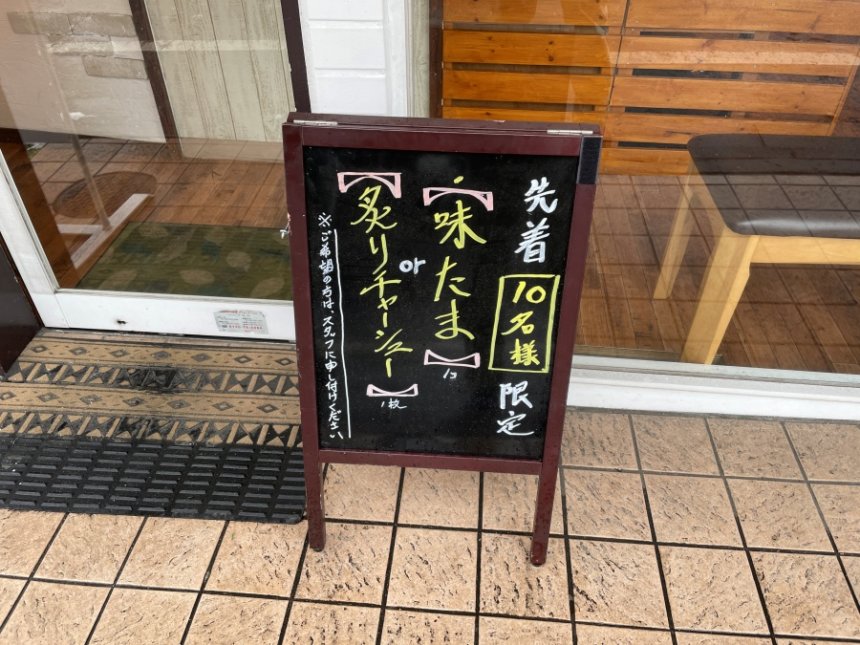 先着
10名様
限定
【味たま】
1コ
or
【炙りチャーシュー】
1枚
※ご希望の方は、スタッフに申し付けください